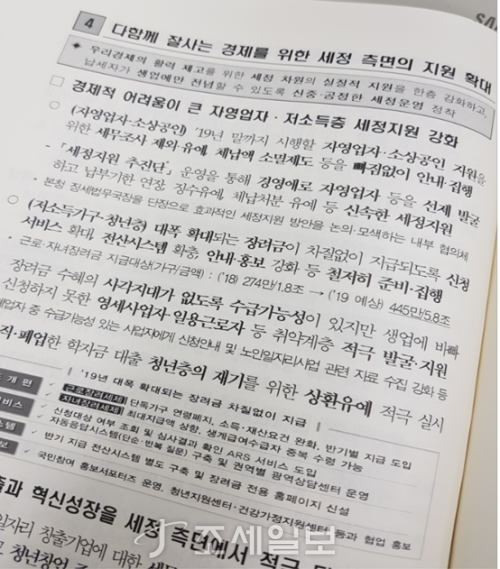 SA
4 다함께 잘사는 경제를 위한 세정 측면의 지원 확대
◆ 우리경제의 활력 제고를 위한 세정 차원의 실질적 지원을 한층 강화하고,
납세자가 생업에만 전념할 수 있도록 신중·공정한 세정운영 정착
□ 경제적 어려움이 큰 자영업자·저소득층 세정지원 강화
○ (자영업자·소상공인) '19년 말까지 시행할 자영업자·소상공인 지원을
위한 세무조사 제외·유예, 체납액 소멸제도 등을 빠짐없이 안내·집행
- 「세정지원 추진단」 운영을 통해 경영애로 자영업자 등을 선제 발굴
하고 납부기한 연장, 징수유예, 체납처분 유예 등 신속한 세정지원
* 본청 징세법무국장을 단장으로 효과적인 세정지원 방안을 논의·모색하는 내부 협의체
○ (저소득가구·청년층) 대폭 확대되는 장려금이 차질없이 지급되도록 신청
서비스 확대, 전산시스템 확충, 안내·홍보 강화 등 철저히 준비·집행
* 근로·자녀장려금 지급대상(가구/금액) : ('18) 274만/1.8조 → ('19 예상) 445만/5.8조
장려금 수혜의 사각지대가 없도록 수급가능성이 있지만 생업에 바빠
신청하지 못한 영세사업자·일용근로자 등 취약계층 적극 발굴·지원
사업자 중 수급가능성 있는 사업자에게 신청안내 및 노인일자리사업 관련 자료 수집 강화 등
직·폐업한 학자금 대출 청년층의 재기를 위한 상환유예 적극 실시
'19년 대폭 확대되는 장려금 차질없이 지급
도 개편 ✓ 근로장려세제 단독가구 연령폐지, 소득·재산요건 완화, 반기별 지급 도입
✓ 자녀장려세제 최대지급액 상향, 생계급여수급자 중복 수령 가능
서비스 ✓ 신청대상 여부 조회 및 심사결과 확인 ARS 서비스 도입
✓ 자동응답시스템(단순·반복 질문) 구축 및 권역별 광역상담센터 운영
스템 ✓ 반기 지급 전산시스템 별도 구축 및 장려금 전용 홈페이지 신설
보 ✓ 국민참여 홍보서포터즈 운영, 청년지원센터·건강가정지원센터 등과 협업 홍보
출과 혁신성장을 세정 측면에서 적극
일자리 창출기업에 대한
청년창업
조세일보